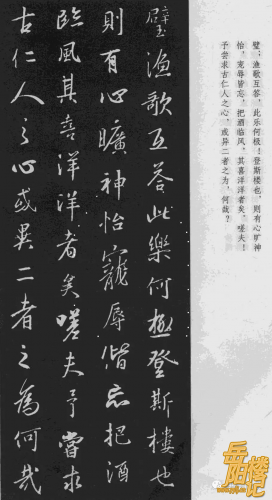 璧；渔歌互答，此乐何极！登斯楼也，则有心旷神
怡，宠辱皆忘，把酒临风，其喜洋洋者矣。嗟夫！
予尝求古仁人之心，或异二者之为，何哉？
璧漁歌互答此樂何極登斯樓也
則有心曠神怡寵辱偕忘把酒
臨風其喜洋洋者矣嗟夫予嘗求
古仁人之心或異二者之為何哉
岳阳楼记